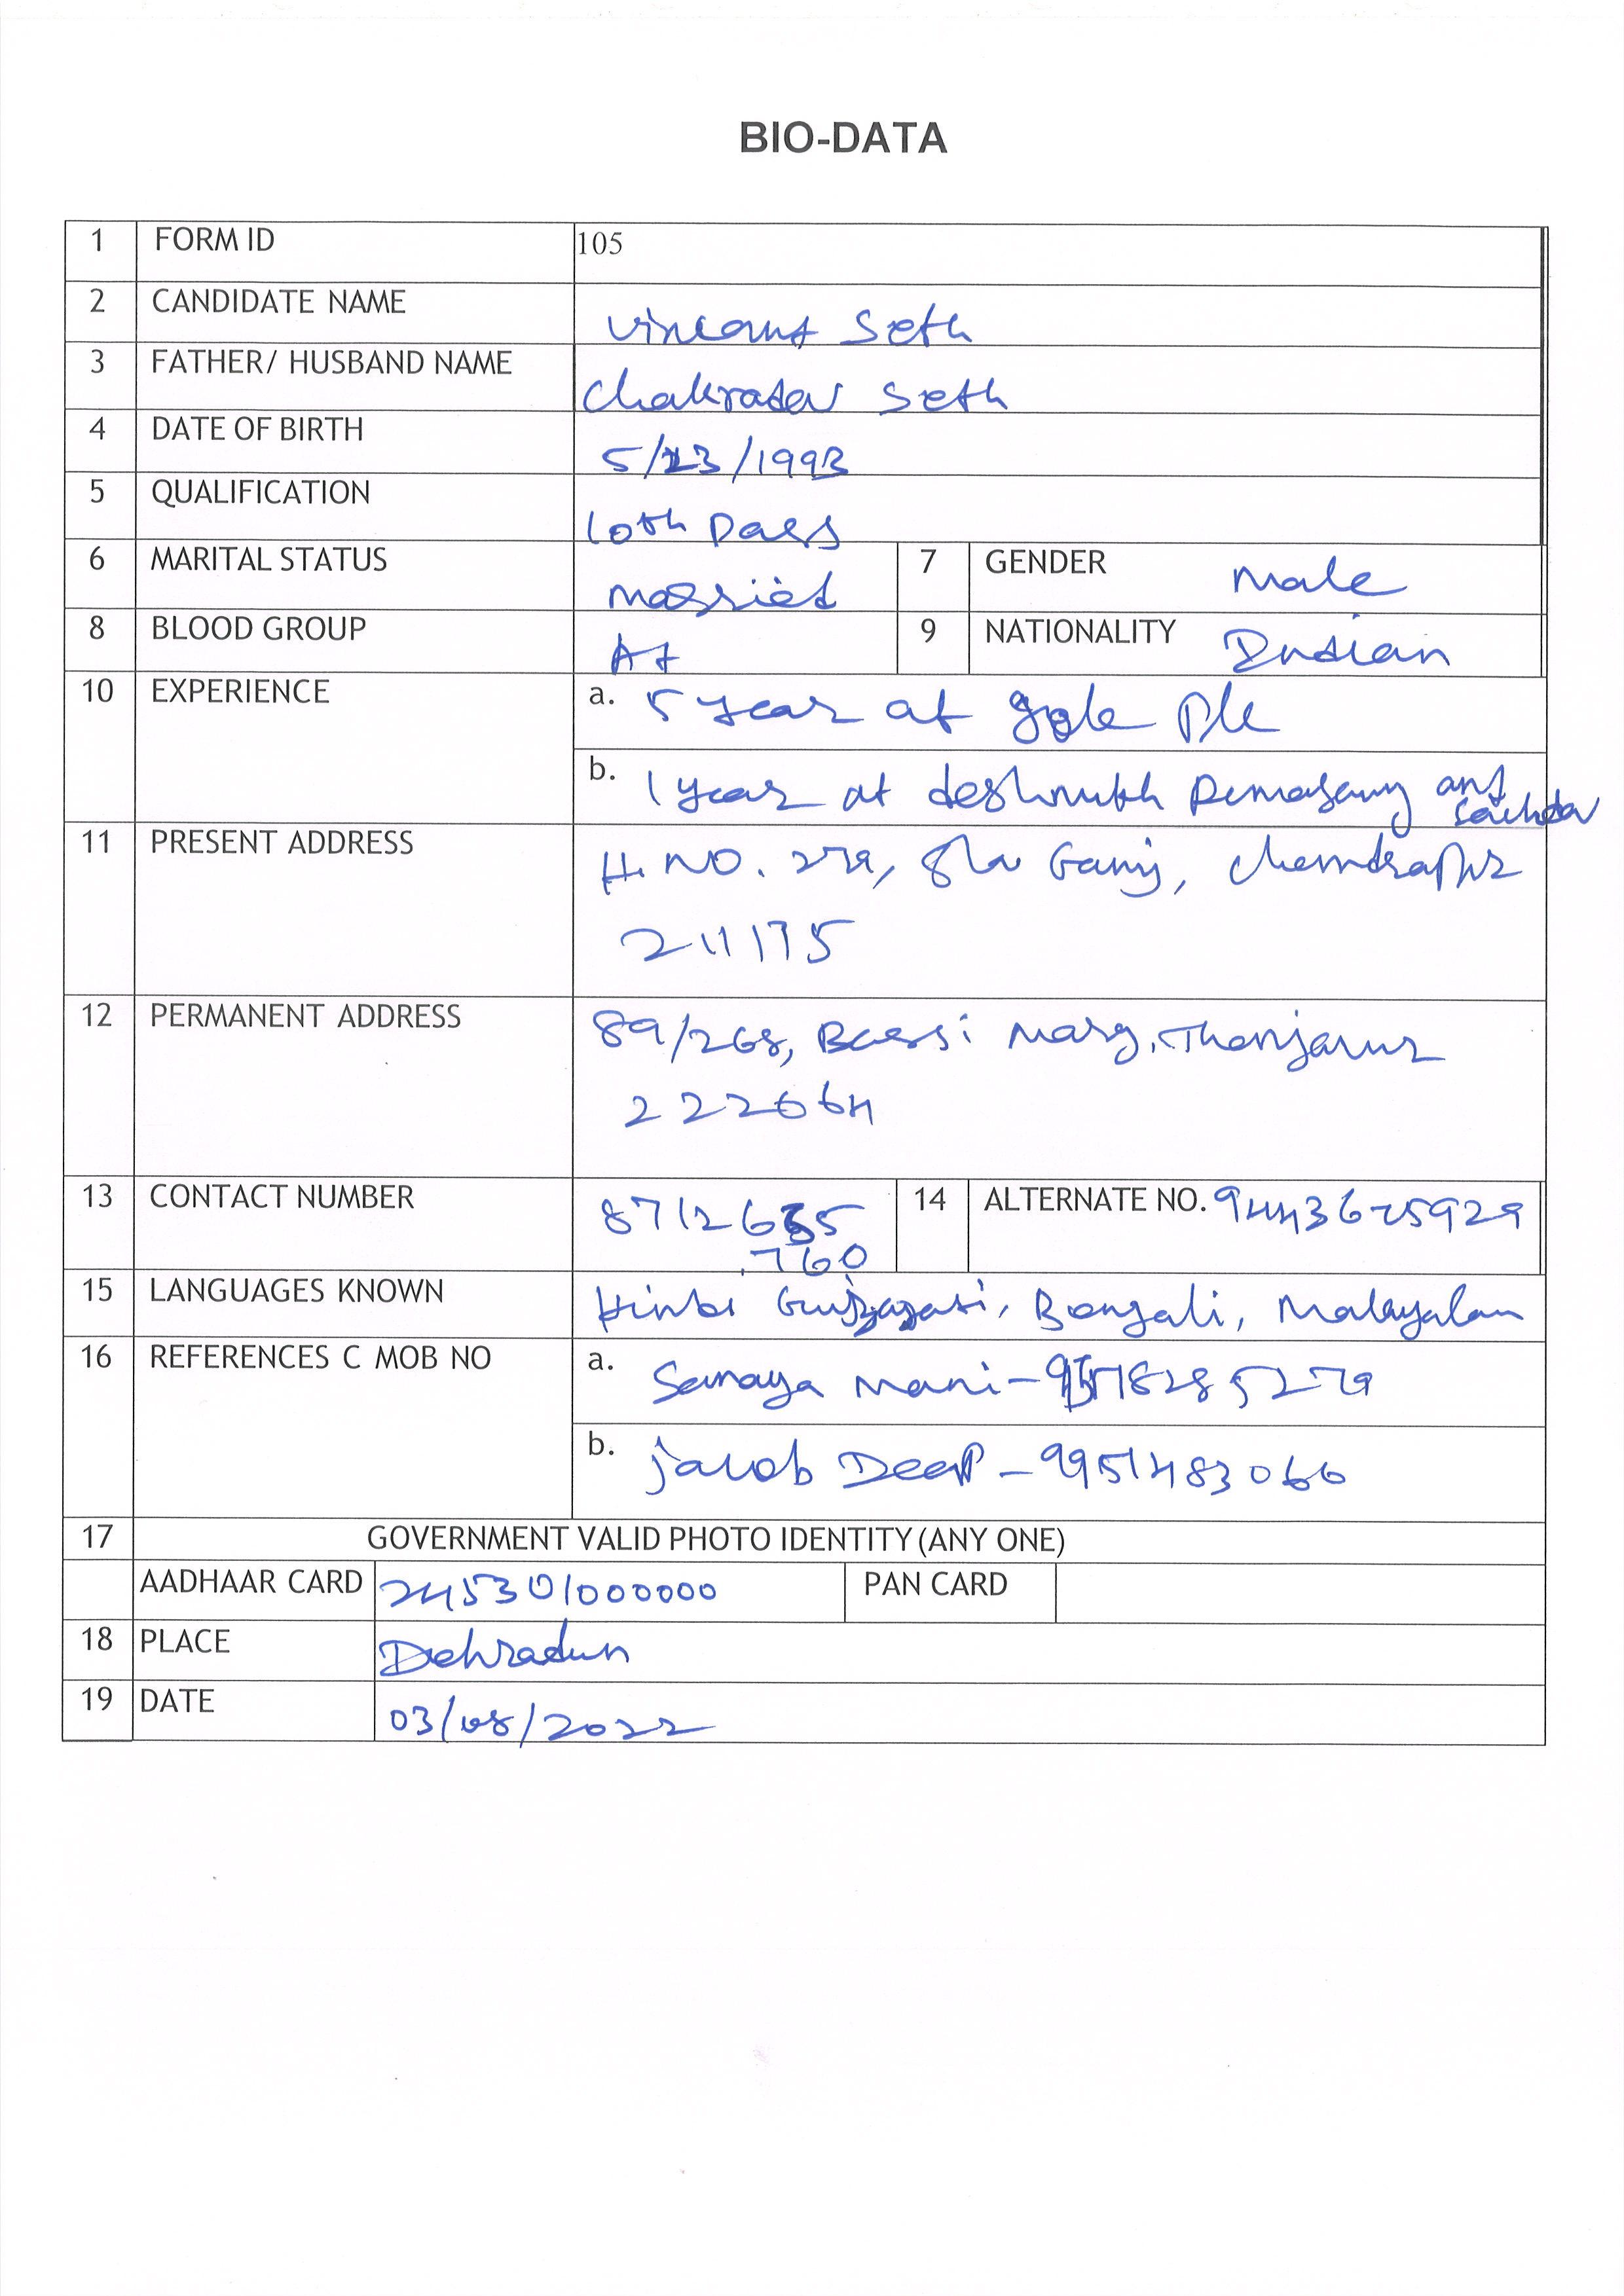 BIO-DATA
1 FORM ID 105
2 CANDIDATE NAME Vincent Seth
3 FATHER/ HUSBAND NAME Chakradev Seth
4 DATE OF BIRTH 5/23/1993
5 QUALIFICATION 10th Pass
6 MARITAL STATUS Married 7 GENDER Male
8 BLOOD GROUP A+ 9 NATIONALITY Indian
10 EXPERIENCE a. 5 year at gole Plc
b. 1 year at deshmukh and
11 PRESENT ADDRESS H. NO. 279, Ganj, Chandrapur
211175
12 PERMANENT ADDRESS 89/268, Marg, Thanjavur
222664
13 CONTACT NUMBER 8712665 14 ALTERNATE NO. 9443675929
760
15 LANGUAGES KNOWN Hindi Gujarati, Bengali, Malayalam
16 REFERENCES C MOB NO a. Samaya Mani -
b. Jacob Deep - 9951483060
17 GOVERNMENT VALID PHOTO IDENTITY (ANY ONE)
AADHAAR CARD 245301000000 PAN CARD
18 PLACE Dehradun
19 DATE 03/08/2022